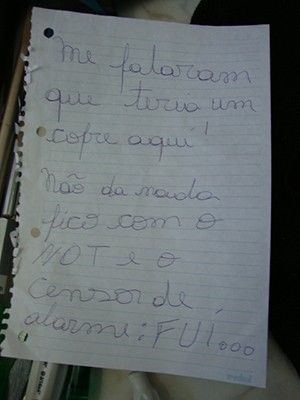 Me falaram
que teria um
cofre aqui!
Não da nada
fico com o
NOT e o
Censor de
alarme: FUI...